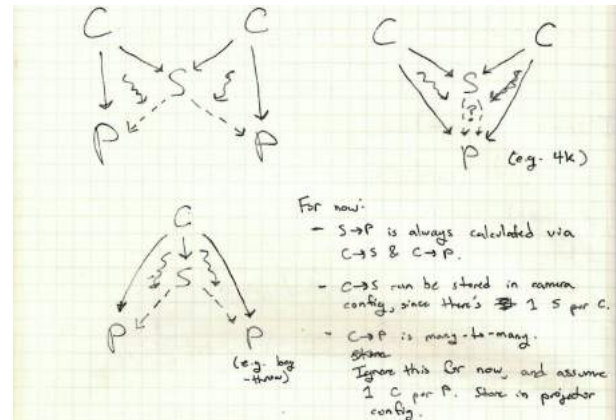 C C
S
P P
C C
S
?
P
(e.g. 4k)
C
S
P P
(e.g. long
-throw)
For now:
- S→P is always calculated via
C→S & C→P.
- C→S can be stored in camera
config, since there's 1 S per C.
- C→P is many-to-many.
Ignore this for now, and assume
1 C per P. Store in projector
config.